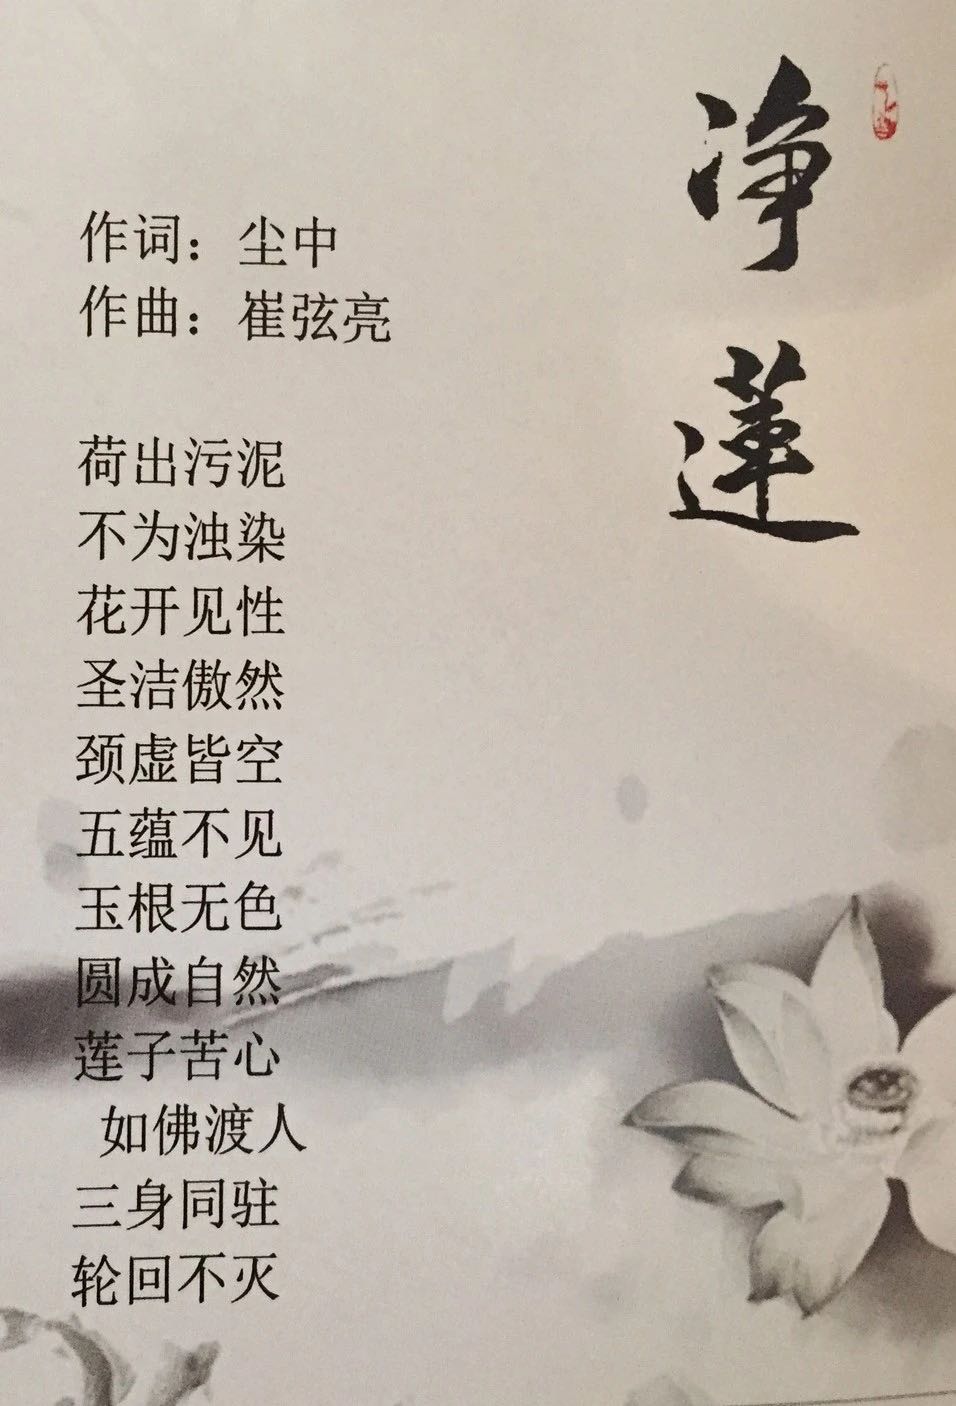 净蓮
作词：尘中
作曲：崔弦亮
荷出污泥
不为浊染
花开见性
圣洁傲然
颈虚皆空
五蕴不见
玉根无色
圆成自然
莲子苦心
如佛渡人
三身同驻
轮回不灭